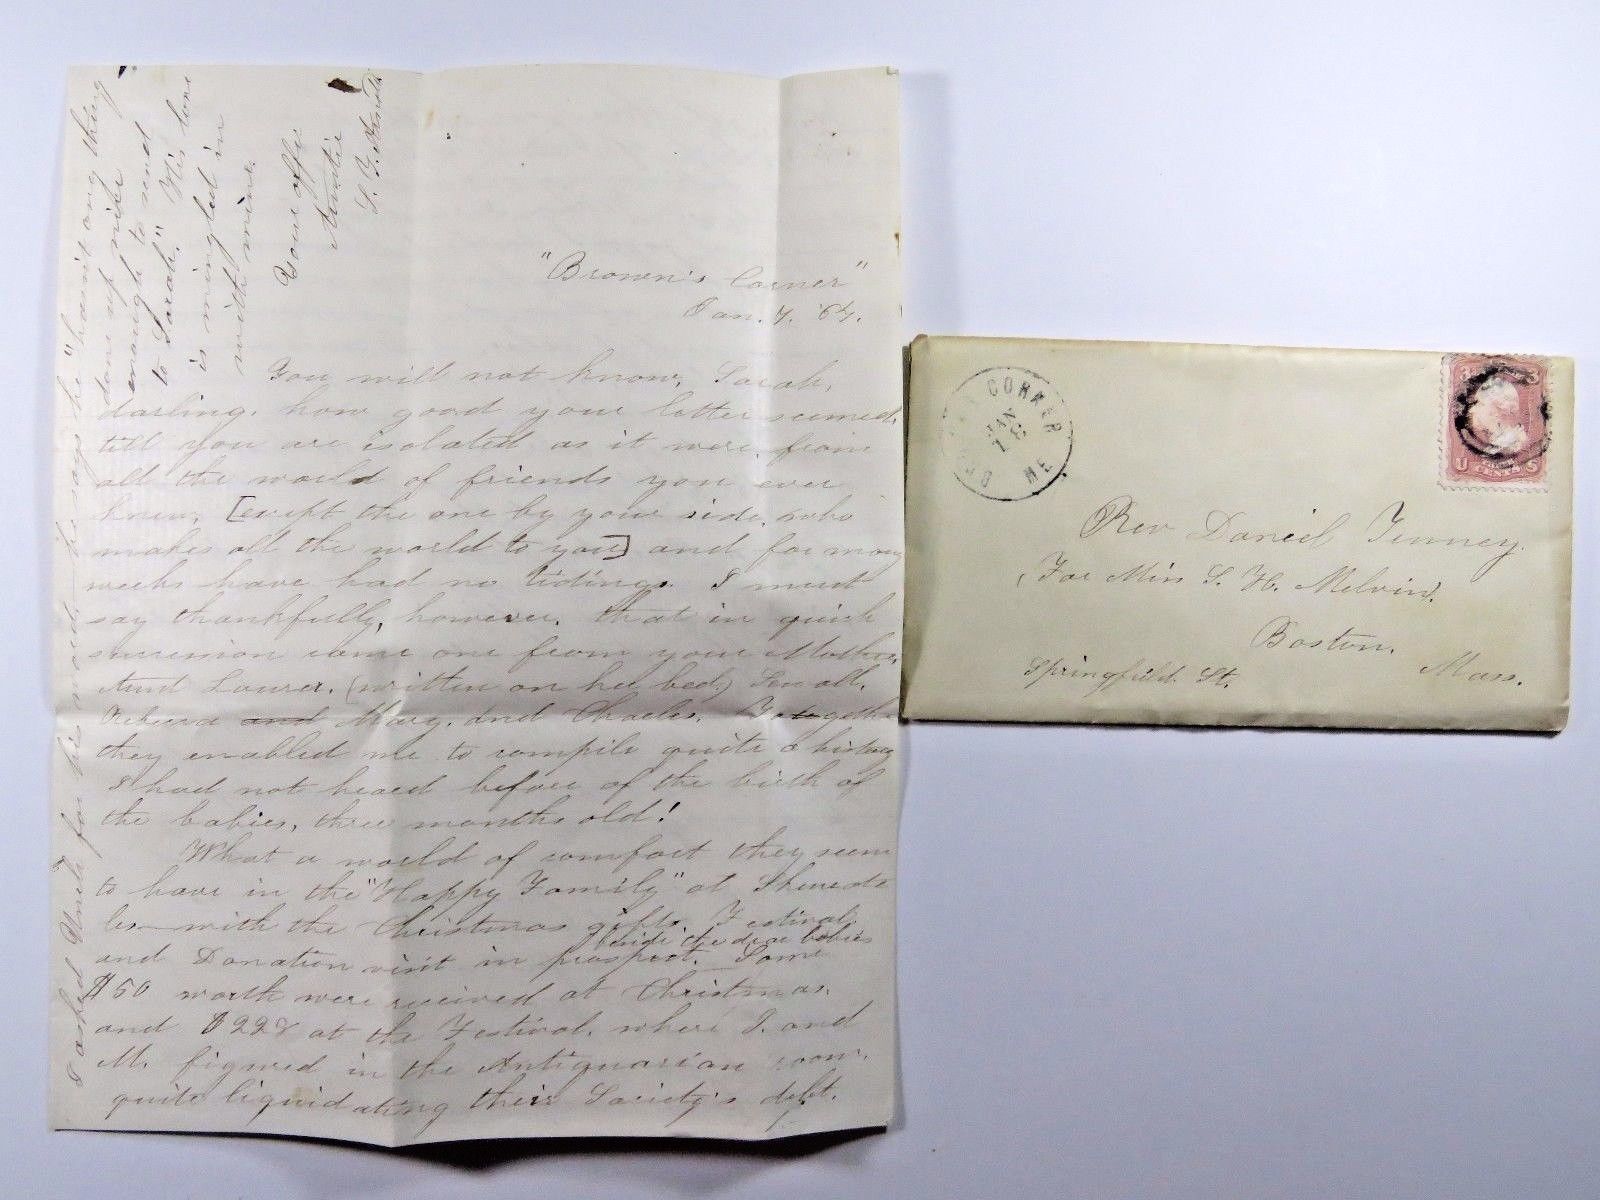 "Brown's Corner"
Jan. 7. '64.
You will not know, Sarah,
darling, how good your letter seemed,
till you are isolated as it were from
all the world of friends you ever
knew, [except the one by your side, who
makes all the world to you] and for many
weeks have had no tidings. I must
say thankfully, however, that in quick
succession came one from your Mother,
Aunt Louisa, (written on her bed,)
Rebecca and Mary, and Charles. together
they enabled me to compile quite a history
I had not heard before of the birth of
the babies, three months old!
What a world of comfort they seem
to have in the "Happy Family" at
with the Christmas gifts, Festival,
beside the dear babies
and Donation visit in prospect. Some
$50 worth were received at Christmas,
and $228 at the Festival, where J. and
M. figured in the Antiquarian room,
quite liquidating their Society's debt.
I asked Uncle for his word, — he says he "hain't any thing
done up nice
enough to send
to Sarah." His love
is mingled in
with mine.
Your aff.
Auntie
S. J.
CORNER
JAN
ME
U S
CENTS
Rev Daniel Tenney.
(For Miss S. H. Melvin).
Boston.
Springfield St. Mass.